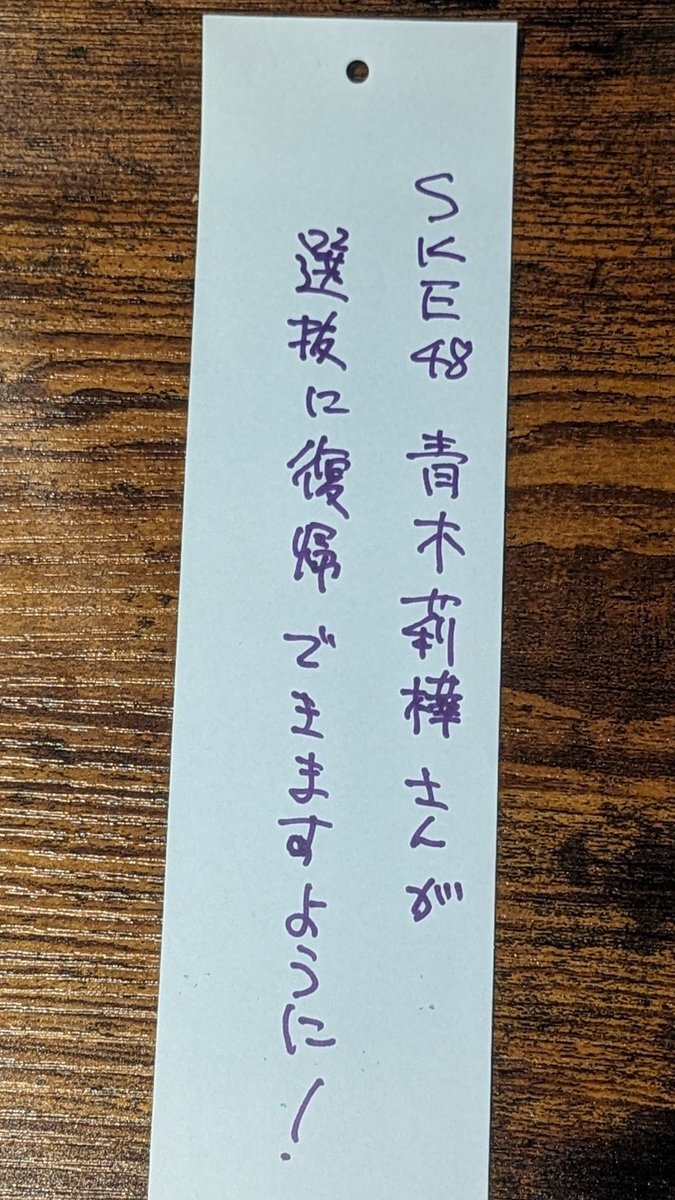 SKE48 青木莉樺さんが
選抜に復帰できますように!